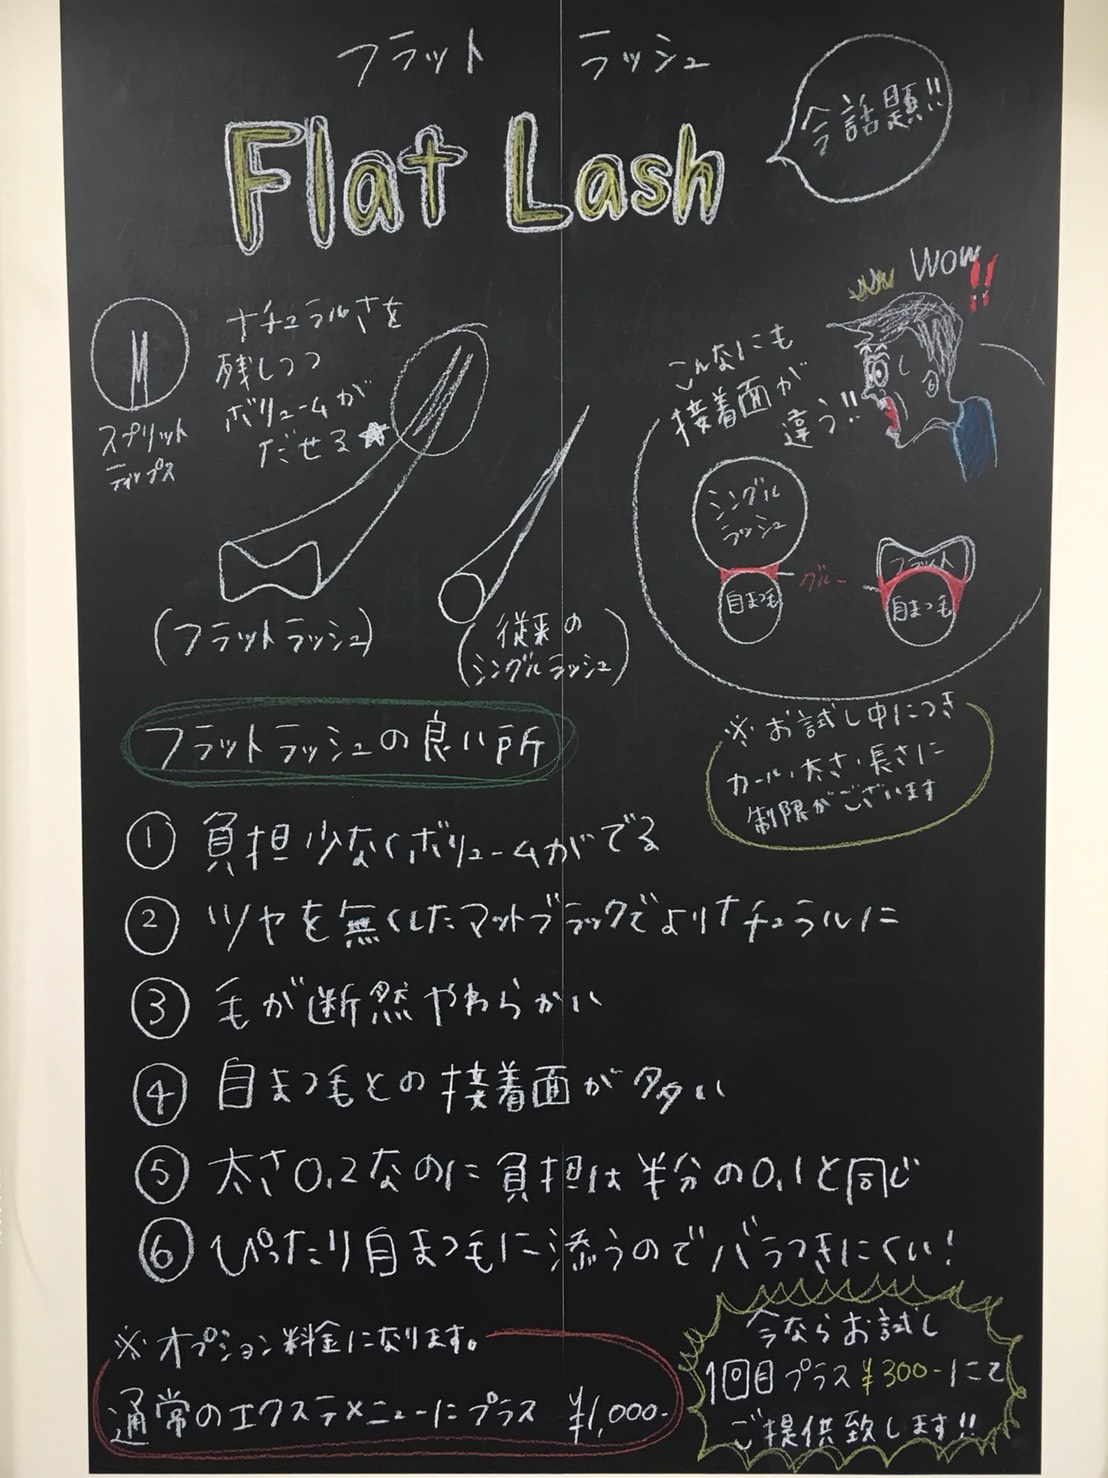 フラット ラッシュ
Flat Lash
今話題!!
Wow!!
ナチュラルさを
残しつつ
ボリュームが
だせる★
スプリット
ティップス
こんなにも
接着面が
違う!!
シングル
ラッシュ
グルー
自まつ毛
フラット
自まつ毛
(フラットラッシュ)
(従来の
シングルラッシュ)
フラットラッシュの良い所
※お試し中につき
カール・太さ・長さに
制限がございます
① 負担少なくボリュームがでる
② ツヤを無くしたマットブラックでよりナチュラルに
③ 毛が断然やわらかい
④ 自まつ毛との接着面が多い
⑤ 太さ0.2なのに負担は半分の0.1と同じ
⑥ ぴったり自まつ毛に添うのでバラつきにくい!
※オプション料金になります。
通常のエクステメニューにプラス ¥1,000-
今ならお試し
1回目プラス¥300-にて
ご提供致します!!